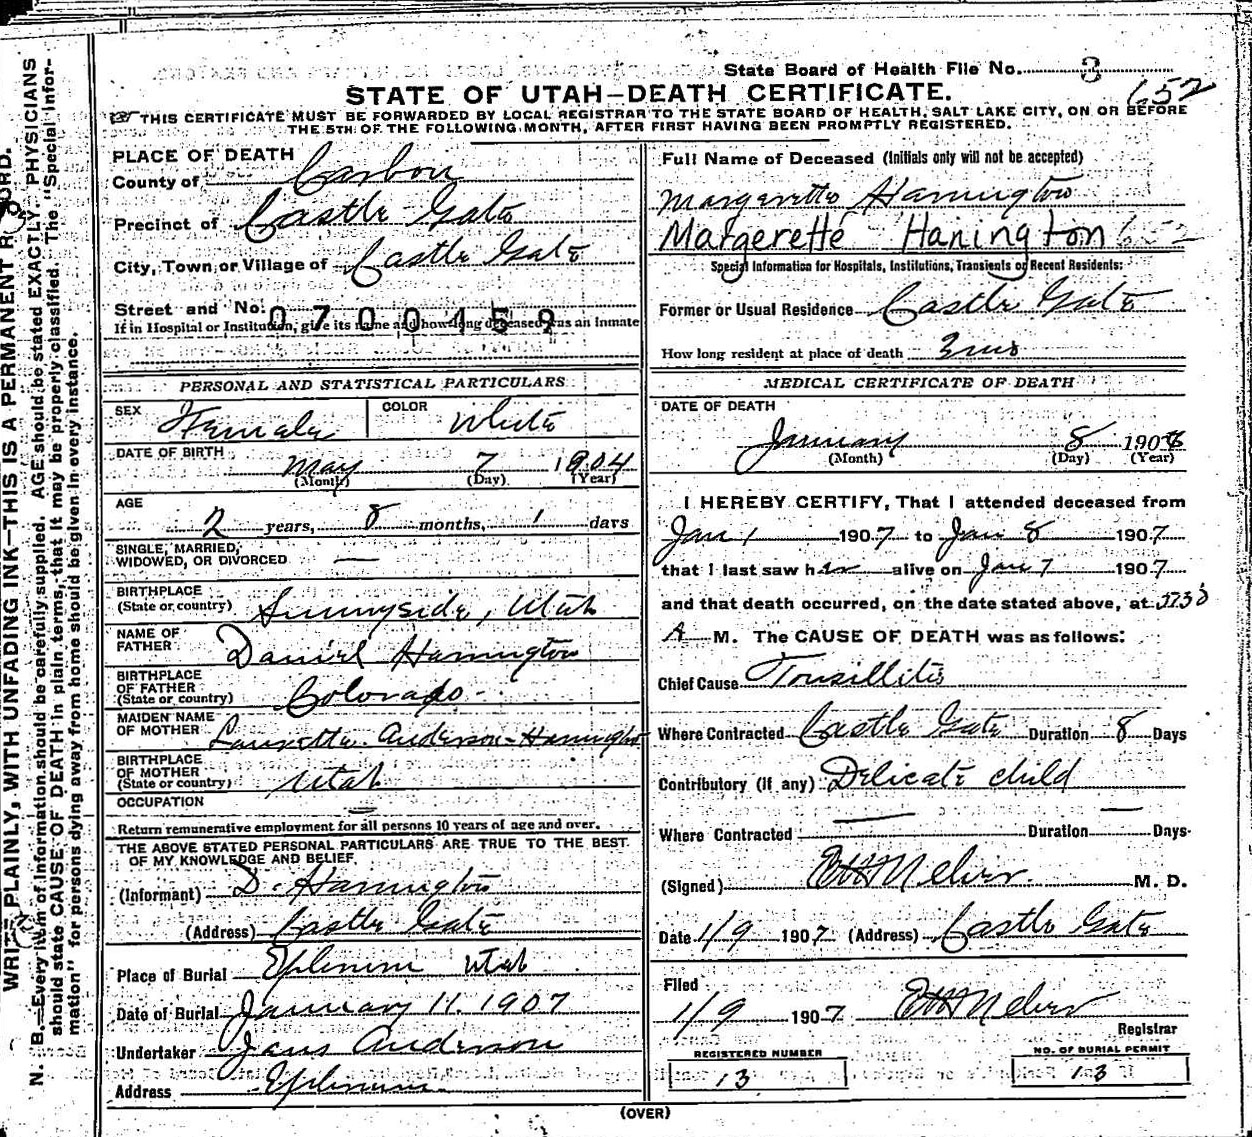 State Board of Health File No. 3
652
STATE OF UTAH—DEATH CERTIFICATE.
THIS CERTIFICATE MUST BE FORWARDED BY LOCAL REGISTRAR TO THE STATE BOARD OF HEALTH, SALT LAKE CITY, ON OR BEFORE
THE 5TH OF THE FOLLOWING MONTH, AFTER FIRST HAVING BEEN PROMPTLY REGISTERED.
PLACE OF DEATH
County of Carbon
Precinct of Castle Gate
City, Town or Village of Castle Gate
Street and No.
0700459
If in Hospital or Institution, give its name and how long deceased was an inmate
PERSONAL AND STATISTICAL PARTICULARS
SEX Female COLOR White
DATE OF BIRTH May 7 1904
(Month) (Day) (Year)
AGE
2 years, 8 months, 1 days
SINGLE, MARRIED,
WIDOWED, OR DIVORCED —
BIRTHPLACE
(State or country) Sunnyside, Utah
NAME OF
FATHER Daniel Harrington
BIRTHPLACE
OF FATHER
(State or country) Colorado
MAIDEN NAME
OF MOTHER Laurette Anderson-Harrington
BIRTHPLACE
OF MOTHER
(State or country) Utah
OCCUPATION
Return remunerative employment for all persons 10 years of age and over.
THE ABOVE STATED PERSONAL PARTICULARS ARE TRUE TO THE BEST
OF MY KNOWLEDGE AND BELIEF.
(Informant) D. Harrington
(Address) Castle Gate
Place of Burial Ephraim Utah
Date of Burial January 11. 1907
Undertaker Jans Anderson
Address Ephraim
Full Name of Deceased (Initials only will not be accepted)
Margerette Harrington
Margerette Hanington 652
Special Information for Hospitals, Institutions, Transients or Recent Residents:
Former or Usual Residence Castle Gate
How long resident at place of death 3 mos
MEDICAL CERTIFICATE OF DEATH
DATE OF DEATH
January 8 190
(Month) (Day) (Year)
I HEREBY CERTIFY, That I attended deceased from
Jan 1 1907 to Jan 8 1907
that I last saw her alive on Jan 7 1907
and that death occurred, on the date stated above, at
A M. The CAUSE OF DEATH was as follows:
Chief Cause Tonsillitis
Where Contracted Castle Gate Duration 8 Days
Contributory (if any) Delicate child
Where Contracted — Duration — Days
(Signed) M. D.
Date 1/9 1907 (Address) Castle Gate
Filed
1/9 1907
Registrar
REGISTERED NUMBER
13
NO. OF BURIAL PERMIT
13
(OVER)
WRITE PLAINLY, WITH UNFADING INK—THIS IS A PERMANENT RECORD.
N. B.—Every item of information should be carefully supplied. AGE should be stated EXACTLY. PHYSICIANS
should state CAUSE OF DEATH in plain terms, that it may be properly classified. The "Special Infor-
mation" for persons dying away from home should be given in every instance.